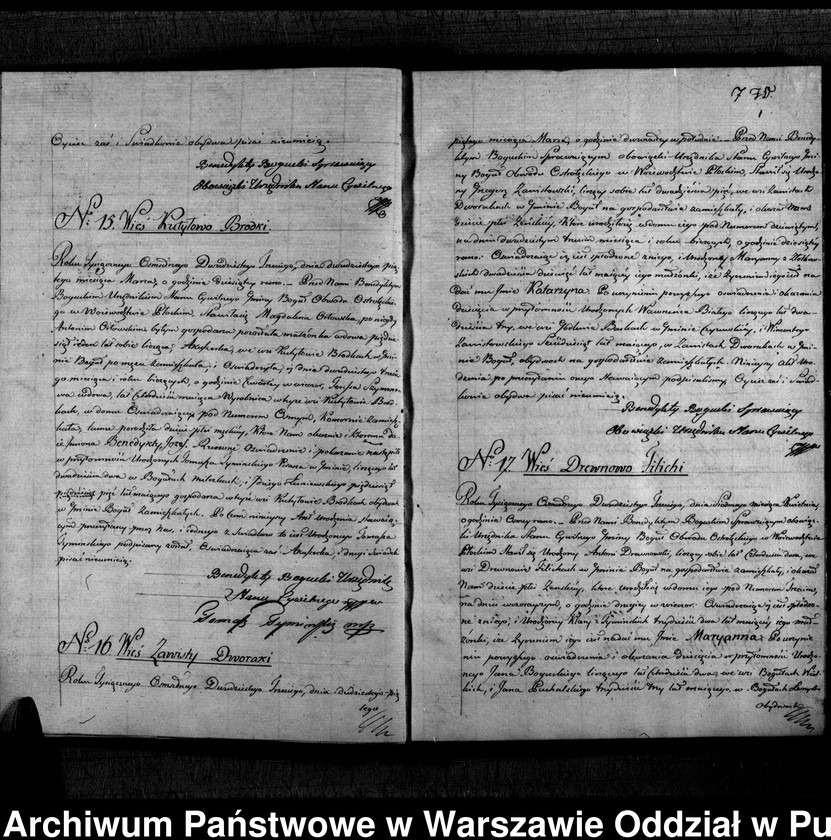 Oyciec zaś i Świadkowie obydwa pisać nieumieią.
Benedykty Bogucki Sprawuiący
Obowiązki Urzędnika Stanu Cywilnego
N° 15. Wieś Kutyłowo Brodki.
Roku Tysiącznego Osmsetnego Dwudziestego Trzeciego, dnia dwudziestego pią-
tego miesiąca Marca, o godzinie dziesiątey rano. Przed Nami Benedyktym
Boguckim Urzędnikiem Stanu Cywilnego Gminy Boguty Obwodu Ostrołęckie-
go w Woiewodztwie Płockim, Stawiła się Magdalena Orłowska, po niegdy
Antonim Orłowskim byłym gospodarzu pozostała małżonka wdowa, pięćdzie-
siąt ieden lat sobie licząca, Akuszerka, we wsi Kutyłowie Brodkach w Gmi-
nie Boguty po mężu zamieszkała, i Oświadczyła, iż dnia dwudziestego trzecie-
go miesiąca i roku bieżących, o godzinie czwartey, w wieczor, Józefa
wdowa, lat czterdzieści maiąca, Wyrobnica w teyże wsi Kutyłowie Brod-
kach, w domu Oświadczaiącey pod Numerem Osmym, Komornie zamiesz-
kała, tamże porodziła dziecię płci męskiey, które Nam okazano i któremu da-
ie Imiona Benedykt, Józef. Rzeczone Oświadczenie i pokazanie nastąpiło
w przytomności Urodzonych Tomasza Tymińskiego Pisarza w Gminie, liczącego lat
dwadzieścia dwa w Bogutach mieszkaiącego, i Jerzego
pięć lat maiącego gospodarza w teyże wsi Kutyłowie Brodkach obydwóch
w Gminie Boguty Zamieszkałych. Po czem ninieyszy Akt Urodzenia Stawaią-
cym przeczytany przez Nas, i iednego z Świadków to iest Urodzonego Tomasza
Tymińskiego podpisany został, Oświadczaiąca zaś Akuszerka, i drugi Świadek
pisać nieumieią.
Benedykty Bogucki Urzędnik
Stanu Cywilnego
Tomasz Tymiński mp
N° 16 Wieś Zawisty Dworaki
Roku Tysiącznego Osmsetnego Dwudziestego Trzeciego, dnia dwudziestego pią-
tego
piątego miesiąca Marca, o godzinie dwunastey w południe. Przed Nami Benedy-
ktym Boguckim Sprawuiącym obowiązki Urzędnika Stanu Cywilnego Gmi-
ny Boguty Obwodu Ostrołęckiego w Woiewodztwie Płockim, Stawił się Urodzo-
ny Grzegorz Zawistowski, liczący sobie lat dwadzieścia pięć, we wsi Zawistach
Dworakach w Gminie Boguty na gospodarstwie zamieszkały, i okazał Nam
dziecię płci żeńskiey, które urodziło się w domu iego pod Numerem dziewiątym,
na dniu dwudziestym trzecim miesiąca i roku bieżących, o godzinie dziesiątey
rano. Oświadczaiąc iż iest spłodzone z niego, i Urodzoney Maryanny z
lat maiącey iego małżonki, iż życzeniem iego iest na-
dać mu Imie Katarzyna. Po uczynieniu powyższego oświadczenia i okazaniu
dziecięcia w przytomności Urodzonych Wawrzeńca Białego liczącego lat dwa-
dzieścia trzy, we wsi Godlewie w Gminie, i Wincentego
Zawistowskiego lat maiącego, w Zawistach Dworakach w Gmi-
nie Boguty, obydwóch na gospodarstwie zamieszkałych. Ninieyszy Akt Uro-
dzenia po przeczytaniu onego Stawaiącym podpisaliśmy, Oyciec zaś i Świad-
kowie obydwa pisać nieumieią.
Benedykty Bogucki Sprawuiący
Obowiązki Urzędnika Stanu Cywilnego
N° 17 Wieś Drewnowo Filichi
Roku Tysiącznego Osmsetnego Dwudziestego Trzeciego, dnia Siodmego miesiąca Kwietnia,
o godzinie rano. Przed Nami Benedyktym Boguckim Sprawuiącym obowiąz-
ki Urzędnika Stanu Cywilnego Gminy Boguty Obwodu Ostrołęckiego w Woiewodztwie
Płockim Stawił się Urodzony Antoni Drewnowski, liczący sobie lat czterdzieści dwa, we
wsi Drewnowie Filichach w Gminie Boguty na gospodarstwie zamieszkały, i okazał
Nam dziecię płci żeńskiey, które urodziło się w domu iego pod Numerem trzecim,
na dniu wczorayszym, o godzinie drugiey, w wieczor. Oświadczaiąc iż iest spłodzo-
ne z niego, i Urodzoney Klary z Tymińskich trzydzieści dwa lat maiącey iego mał-
żonki, iż życzeniem iego iest nadać mu Imie Maryanna. Po uczynie-
niu powyższego oświadczenia i okazaniu dziecięcia w przytomności Urodzo-
nego Jana Boguckiego liczącego lat czterdzieści dwa, we wsi Bogutach Wiel-
kich, i Jana Puchalskiego trzydzieści trzy lat maiącego, w Bogutach
obydwóch
Archiwum Państwowe w Warszawie Oddział w Pu